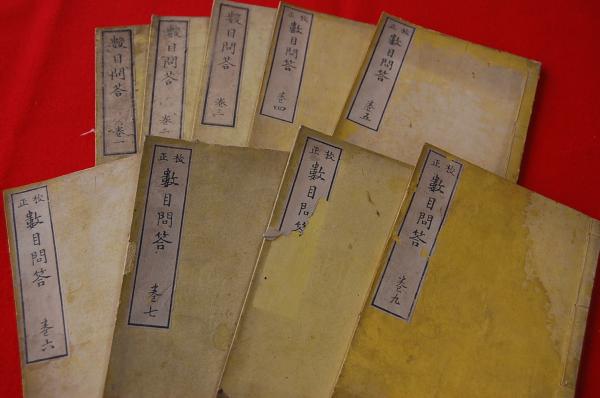 數目問答
卷一
數目問答
卷二
數目問答
卷三
校正
數目問答
卷四
校正
數目問答
卷五
校正
數目問答
卷六
校正
數目問答
卷七
校正
數目問答
校正
數目問答
卷九